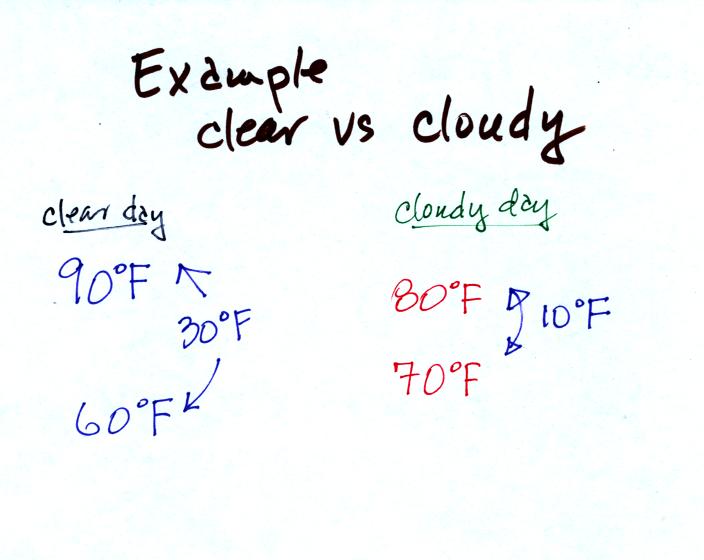 Example
clear vs cloudy
clear day
90°F
30°F
60°F
cloudy day
80°F
10°F
70°F